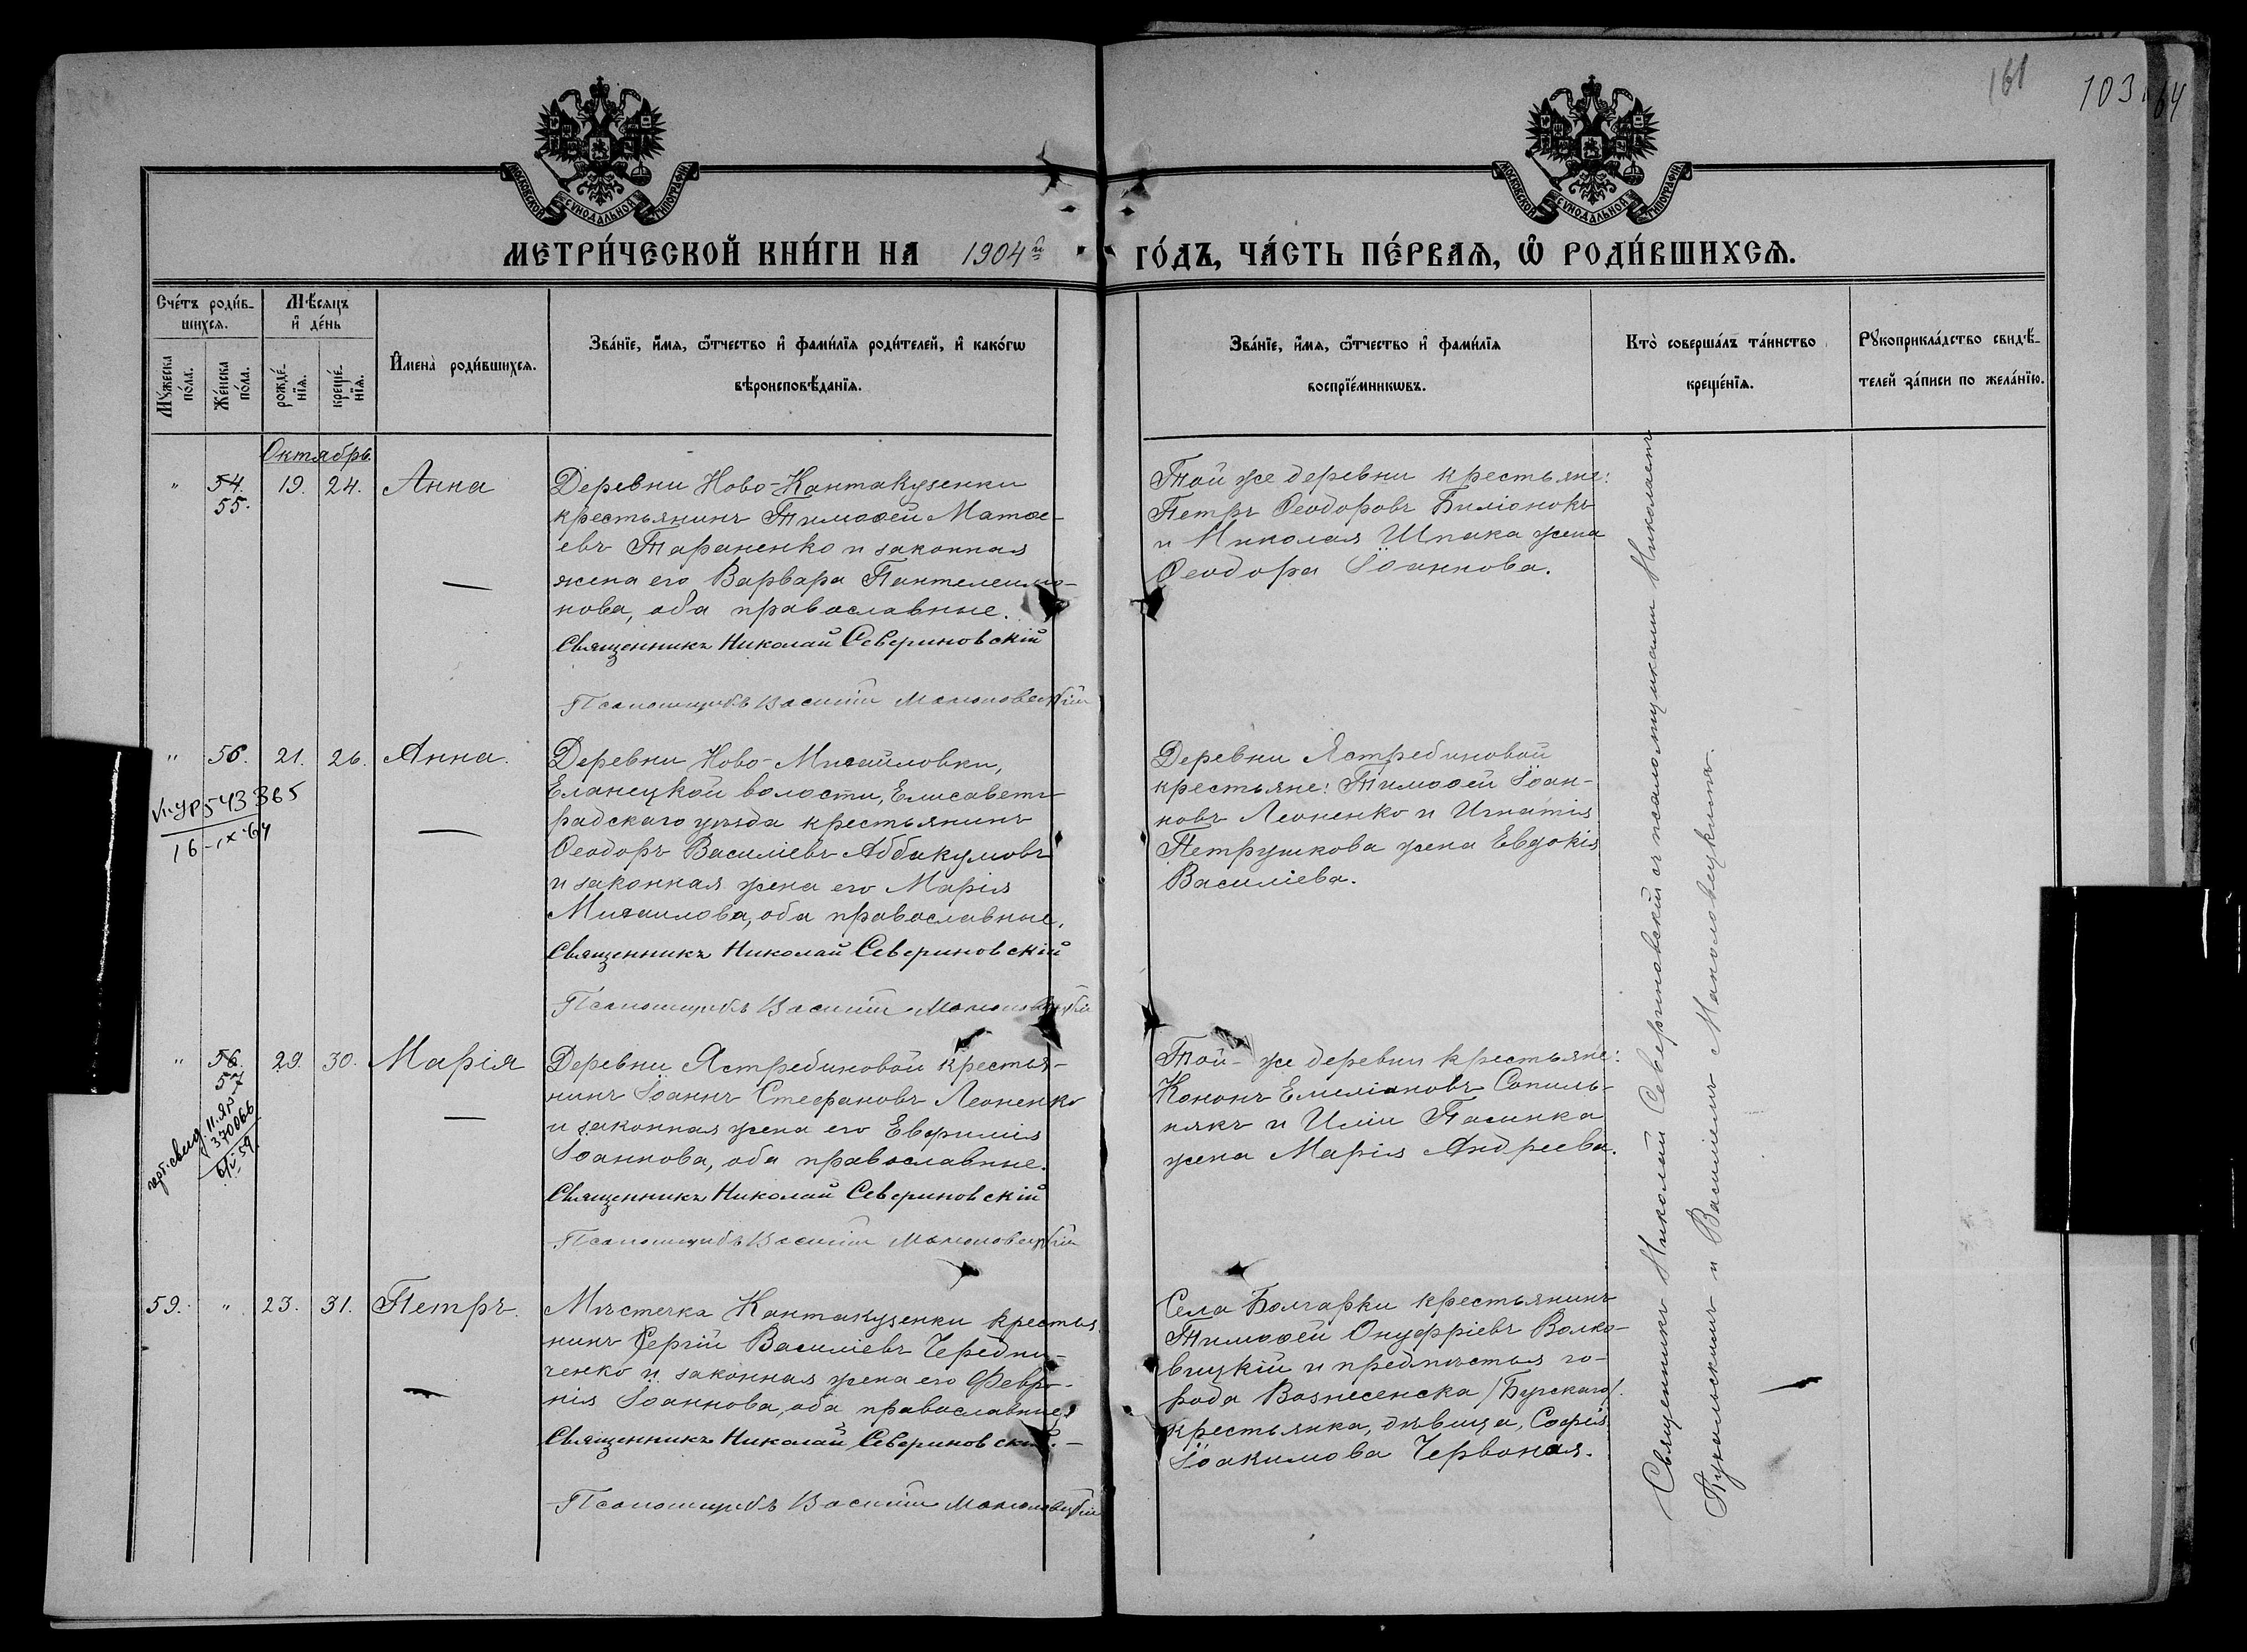 161
103
64
МОСКОВСКОЙ СѴНОДАЛЬНОЙ ТИПОГРАФІИ
МОСКОВСКОЙ СѴНОДАЛЬНОЙ ТИПОГРАФІИ
МЕТРИ́ЧЕСКОЙ КНИ́ГИ НА 1904й ГО́ДЪ, ЧА́СТЬ ПЕ́РВАѦ, Ѡ РОДИ́ВШИХСѦ.
Сче́тъ роди́в-
шихсѧ.
Мѣ́сѧцъ
и҆ де́нь
Мꙋ́жеска
по́ла.
Же́нска
по́ла.
рожде́-
нїѧ.
креще́-
нїѧ.
И҆мена̀ роди́вшихсѧ.
Зва́нїе, и҆́мѧ, ѻ҆́тчество и҆ фами́лїѧ роди́телей, и҆ како́гѡ
вѣроисповѣ́данїѧ.
Зва́нїе, и҆́мѧ, ѻ҆́тчество и҆ фами́лїѧ
воспрїе́мникѡвъ.
Кто̀ соверша́лъ та́инство
креще́нїѧ.
Рꙋкоприкла́дство свидѣ́-
телей за́писи по жела́нїю.
Октябрь
" 54. 19. 24. Анна
55.
Деревни Ново-Кантакузенки
крестьянинъ Тимоѳей Матѳе-
евъ Тараненко и законная
жена его Варвара Пантелеимо-
нова, оба православные.
Священникъ Николай Севериновскій
Псаломщикъ Василій Маколовецкій
Той же деревни крестьяне:
Петръ Ѳеодоровъ Биліонокъ
и Николая Шпака жена
Ѳеодора Іоаннова.
" 56. 21. 26. Анна.
543365
16-ıx-64
Деревни Ново-Михайловки,
Еланецкой волости, Елисавет-
радскаго уѣзда крестьянинъ
Ѳеодоръ Василіевъ Аввакумовъ
и законная жена его Марія
Михаилова, оба православные.
Священникъ Николай Севериновскій
Псаломщикъ Василій Маколовецкій
Деревни Ястребиновой
крестьяне: Тимоѳей Іоан-
новъ Леоненко и Игнатія
Петрушкова жена Евдокія
Василіева.
" 56. 29. 30. Марія
57
370066
Деревни Ястребиновой крестья-
нинъ Іоаннъ Стефановъ Леоненко
и законная жена его Евфимія
Іоаннова, оба православные.
Священникъ Николай Севериновскій
Псаломщикъ Василій Маколовецкій
Той-же деревни крестьяне:
Кононъ Емеліановъ Сопиль-
някъ и Иліи Пасинка
жена Марія Андреева.
59. " 23. 31. Петръ.
Мѣстечка Кантакузенки крестья-
нинъ Сергій Василіевъ Чередни-
ченко и законная жена его Февро-
нія Іоаннова, оба православные
Священникъ Николай Севериновскій. —
Псаломщикъ Василій Маколовецкій
Села Болгарки крестьянинъ
Тимоѳей Онуфріевъ Волко-
вицкій и предмѣстья го-
рода Вознесенска /Бугскаго/
крестьянка, дѣвица, Софія
Іоакимова Червоная.
Священникъ Николай Севериновскій съ псаломщиками Николаемъ
и Василіемъ Маколовецкимъ.